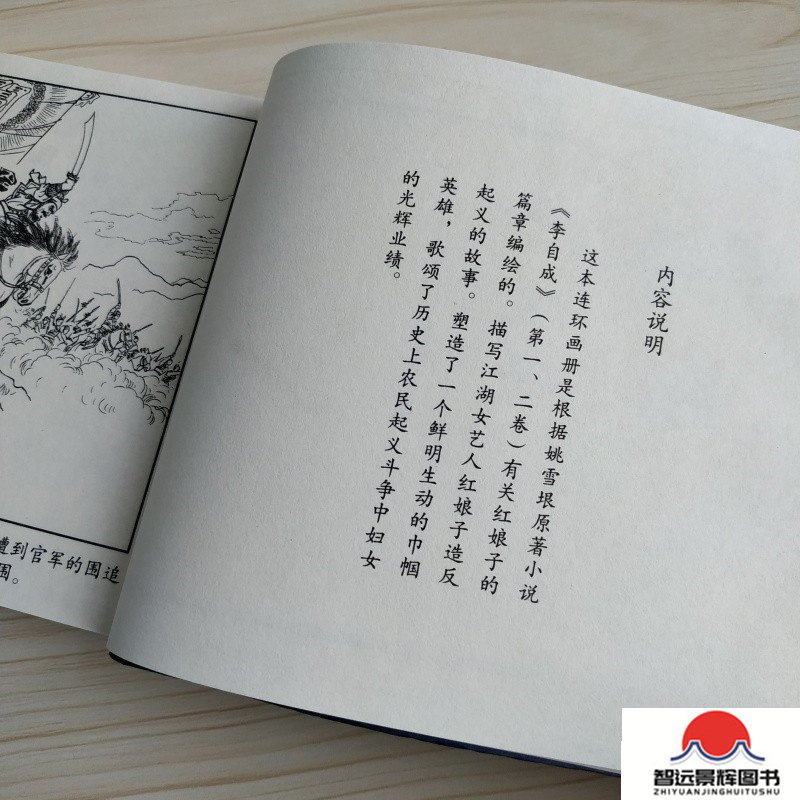 内容说明
这本连环画册是根据姚雪垠原著小说
《李自成》(第一、二卷)有关红娘子的
篇章编绘的。描写江湖女艺人红娘子造反
起义的故事。塑造了一个鲜明生动的巾帼
英雄,歌颂了历史上农民起义斗争中妇女
的光辉业绩。
遭到官军的围追
围。
智远景辉图书
ZHIYUANJINGHUITUSHU